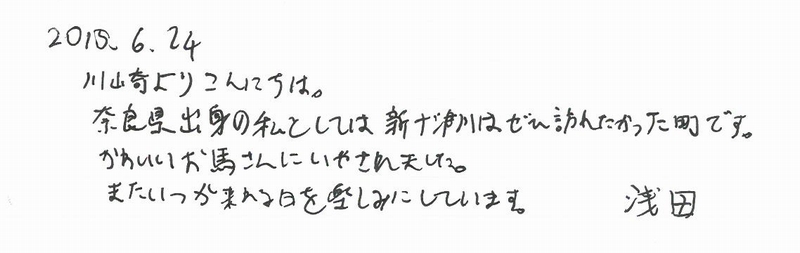 2018.6.24
川崎よりこんにちは。
奈良県出身の私としては新十津川はぜひ訪れたかった町です。
かわいいお馬さんにいやされました。
またいつか来れる日を楽しみにしています。 浅田